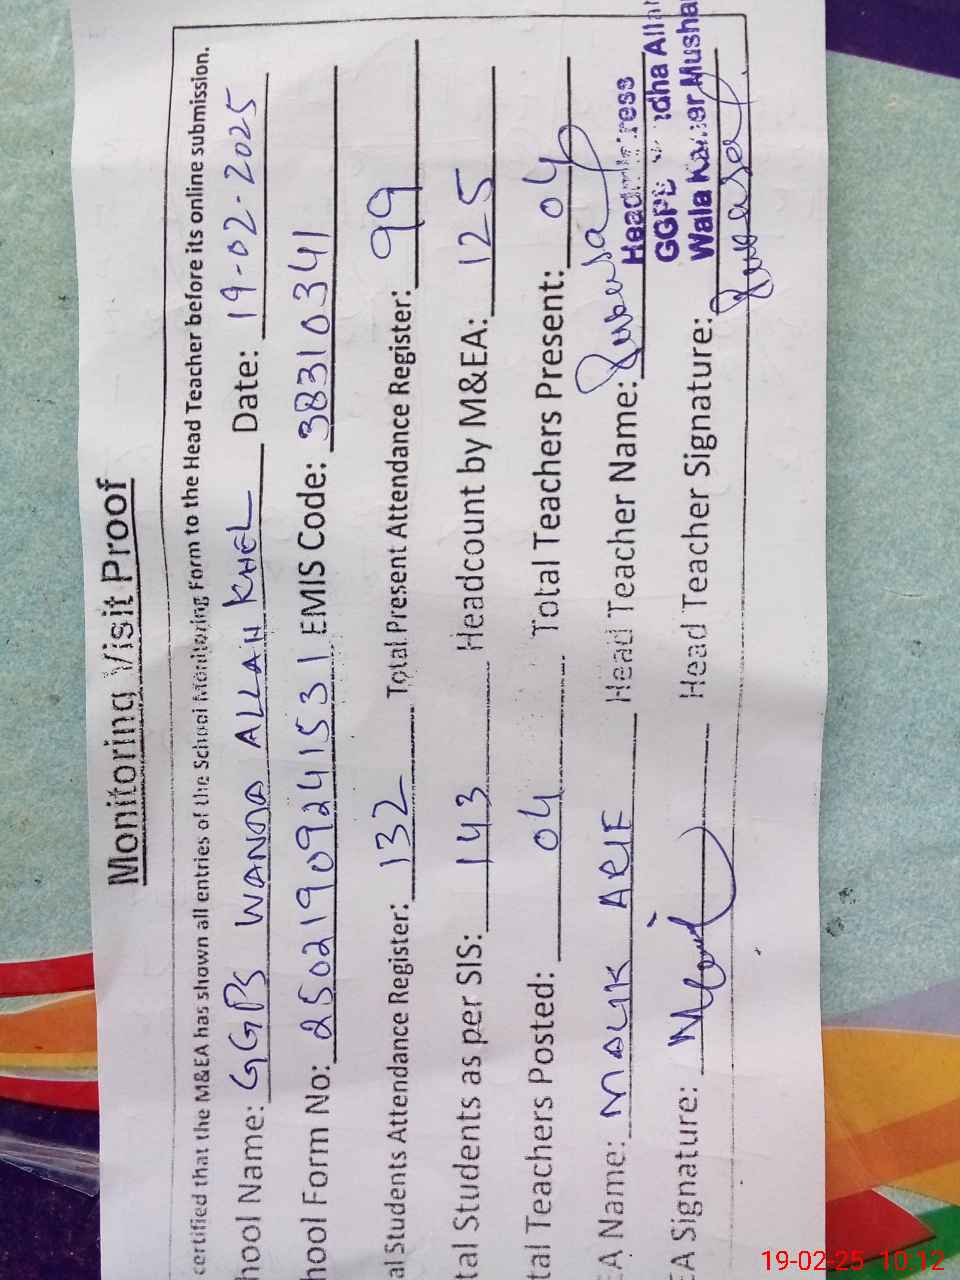 Monitoring Visit Proof
certified that the M&EA has shown all entries of the School Monitoring Form to the Head Teacher before its online submission.
hool Name: GGPS WANDA ALLAH KHEL Date: 19-02-2025
hool Form No: 25021909241531 EMIS Code: 38310341
al Students Attendance Register: 132 Total Present Attendance Register: 99
tal Students as per SIS: 143 Headcount by M&EA: 125
tal Teachers Posted: 04 Total Teachers Present: 04
EA Name: MALIK ARIF Head Teacher Name:
Headmistress
GGPS dha Allah
Wala Kamer Musha
EA Signature: Head Teacher Signature:
19-02-25 10:12